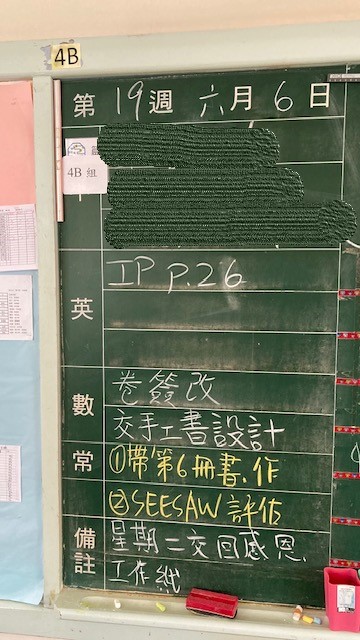 4B
第 19 週 六 月 6 日
4B 組
英 IP P.26
數 卷簽改
交手工書設計
常 ①帶第6冊書、作
②SEESAW評估
備註 星期二交回感恩
工作紙